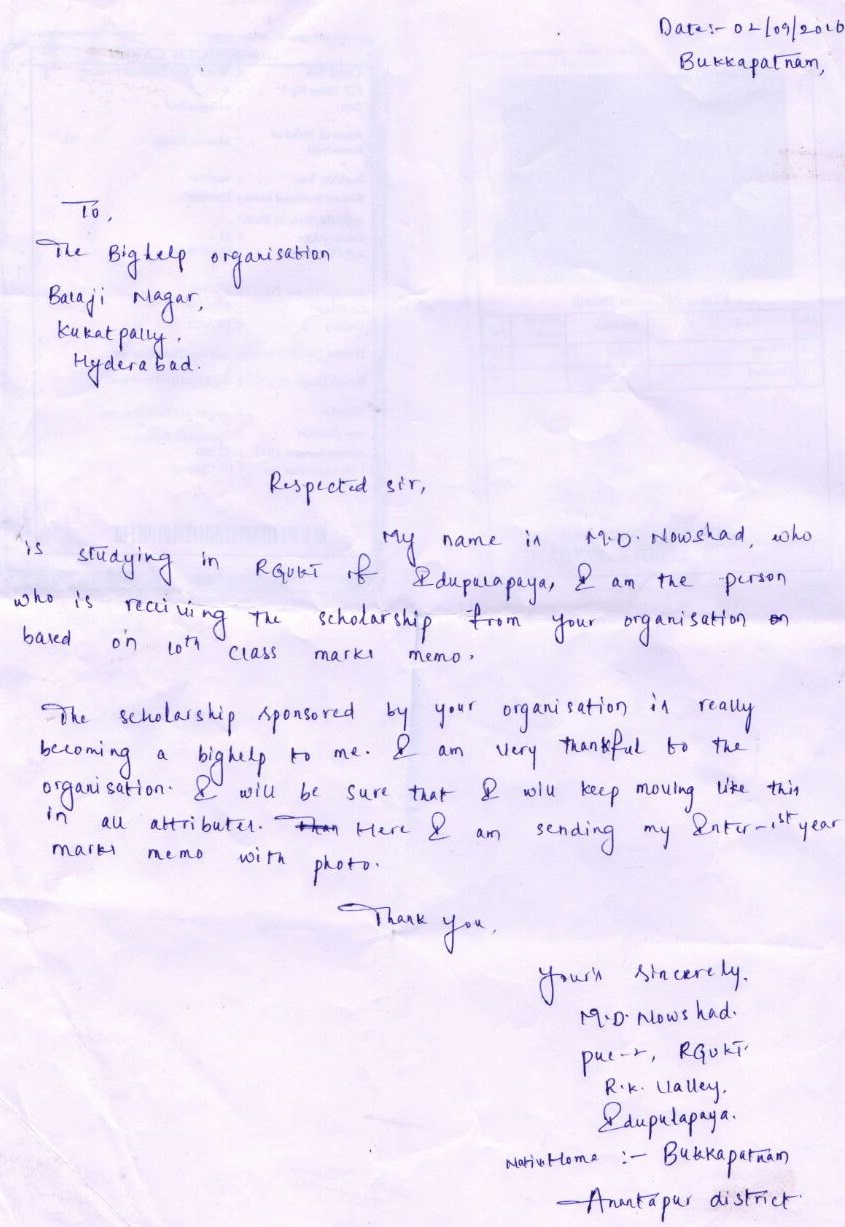 Date:- 02/09/2016
Bukkapatnam,
To,
The Bighelp organisation
Balaji Nagar,
Kukatpally,
Hyderabad.
Respected sir,
My name is M.D. Nowshad, who
is studying in RGUKT of Idupulapaya, I am the person
who is receiving the scholarship from your organisation
based on 10th class marks memo.
The scholarship sponsored by your organisation is really
becoming a bighelp to me. I am very thankful to the
organisation. I will be sure that I will keep moving like this
in all attributes. Here I am sending my Inter-1st year
marks memo with photo.
Thank you,
Your's sincerely.
M.D. Nowshad.
puc-2, RGUKT
R.K. Valley.
Idupulapaya.
Native Home :- Bukkapatnam
Anantapur district.